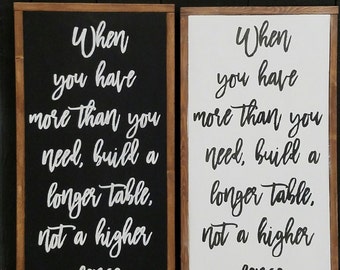 When
you have
more than you
need, build a
longer table,
not a higher
When
you have
more than you
need, build a
longer table,
not a higher